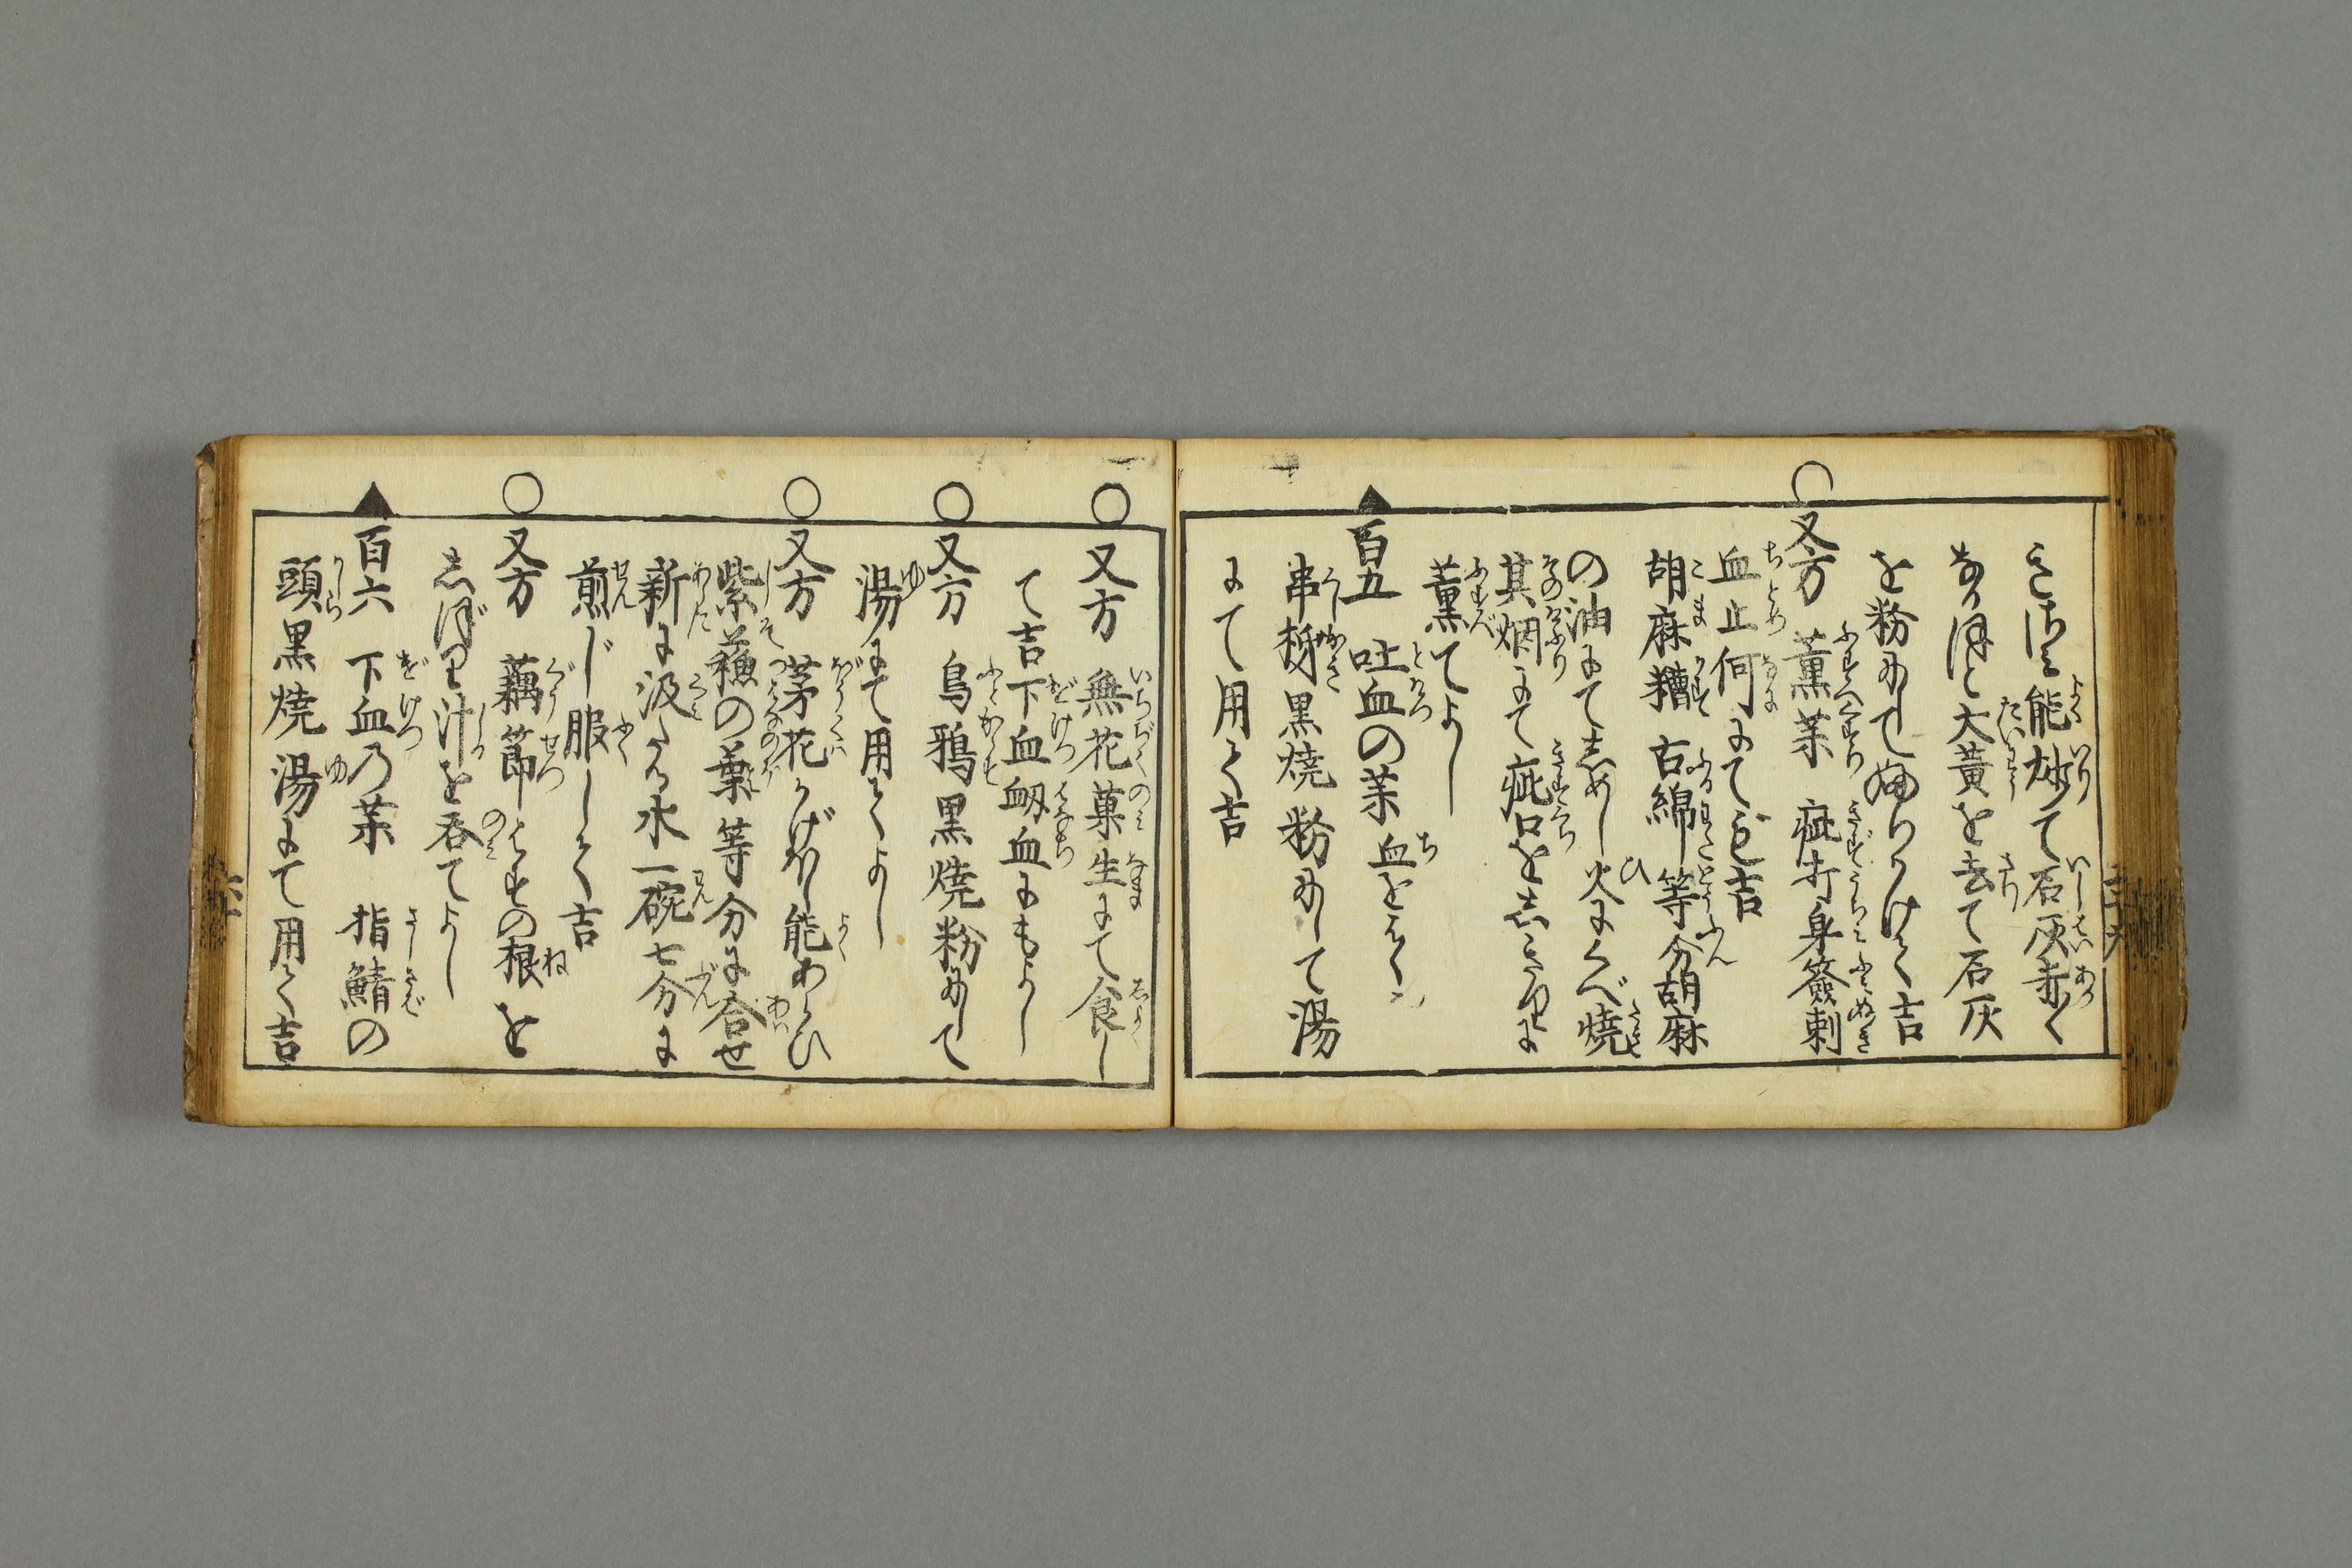 きざみ能炒て石灰赤く
なるほど大黄を去て石灰
を粉にしてぬりつけて吉
又方 薫薬 疵打身簽刺
血止何にても吉
胡麻糟 古綿等分胡麻
の油にてしめし火にくべ焼
其烟にて疵口をしきりに
薫てよし
百五 吐血の薬 血をはく
串柿黒焼粉にして湯
にて用て吉
又方 無花菓生にて食し
て吉下血衂血にもよし
又方 烏鴉黒焼粉にして
湯にて用てよし
又方 茅花かげぼし能あらひ
紫蘓の葉等分に合せ
新に汲たる水一碗七分に
煎じ服して吉
又方 藕節はすの根を
しぼり汁を呑てよし
百六 下血乃薬 指鯖の
頭黒焼湯にて用て吉